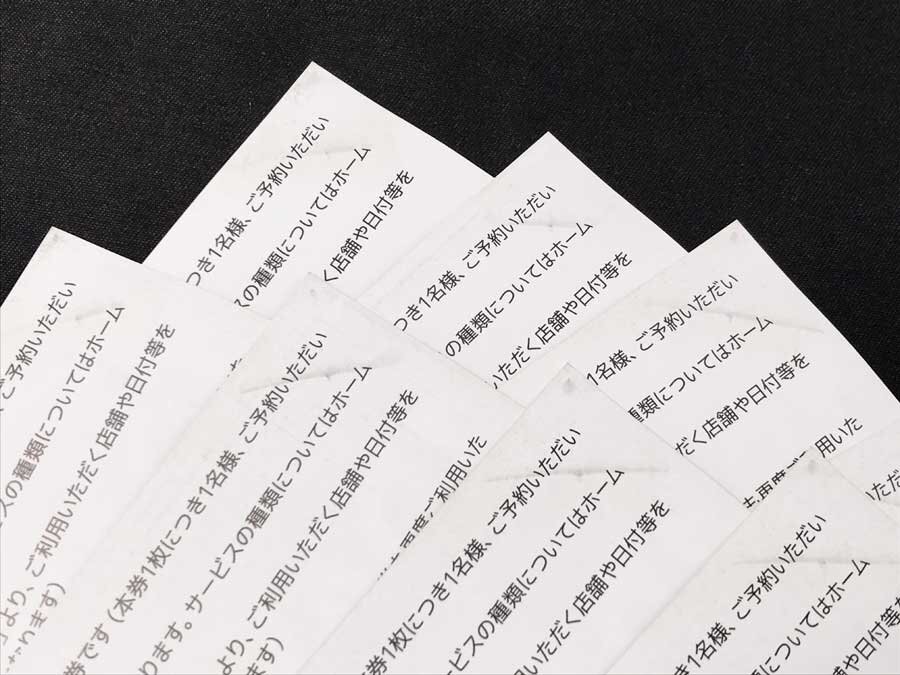 つき1名様、ご予約いただい
スの種類についてはホーム
く店舗や日付等を
つき1名様、ご予約いただい
の種類についてはホーム
いただく店舗や日付等を
再度ご利用いた
1名様、ご予約いただい
種類についてはホーム
だく店舗や日付等を
再度ご利用いた
ご予約いただい
スの種類についてはホーム
より、ご利用いただく店舗や日付等を
なります)
券です (本券1枚につき1名様、ご予約いただい
ります。サービスの種類についてはホーム
より、ご利用いただく店舗や日付等を
ます)
券1枚につき1名様、ご予約いただい
ービスの種類についてはホーム
用いただく店舗や日付等を
き1名様、ご予約いただい
の種類についてはホーム
舗や日付等を